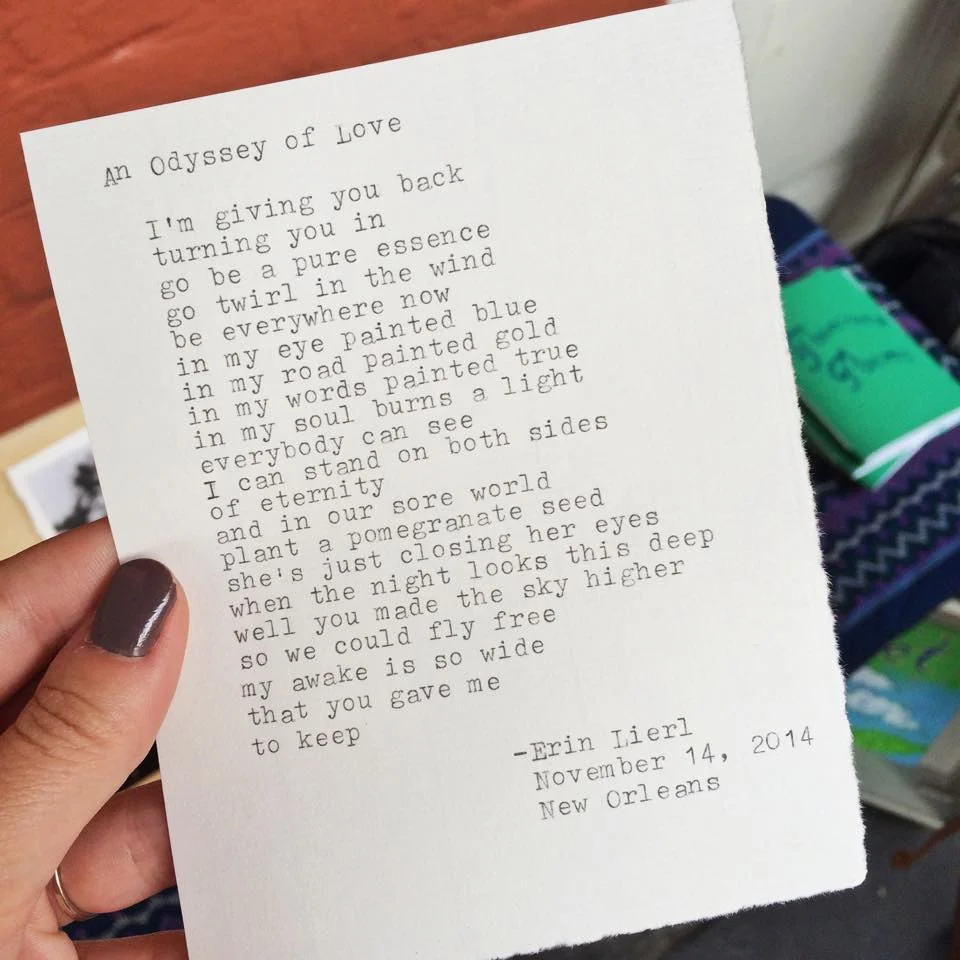 An Odyssey of Love
I'm giving you back
turning you in
go be a pure essence
go twirl in the wind
be everywhere now
in my eye painted blue
in my road painted gold
in my words painted true
in my soul burns a light
everybody can see
I can stand on both sides
of eternity
and in our sore world
plant a pomegranate seed
she's just closing her eyes
when the night looks this deep
well you made the sky higher
so we could fly free
my awake is so wide
that you gave me
to keep
-Erin Lierl
November 14, 2014
New Orleans